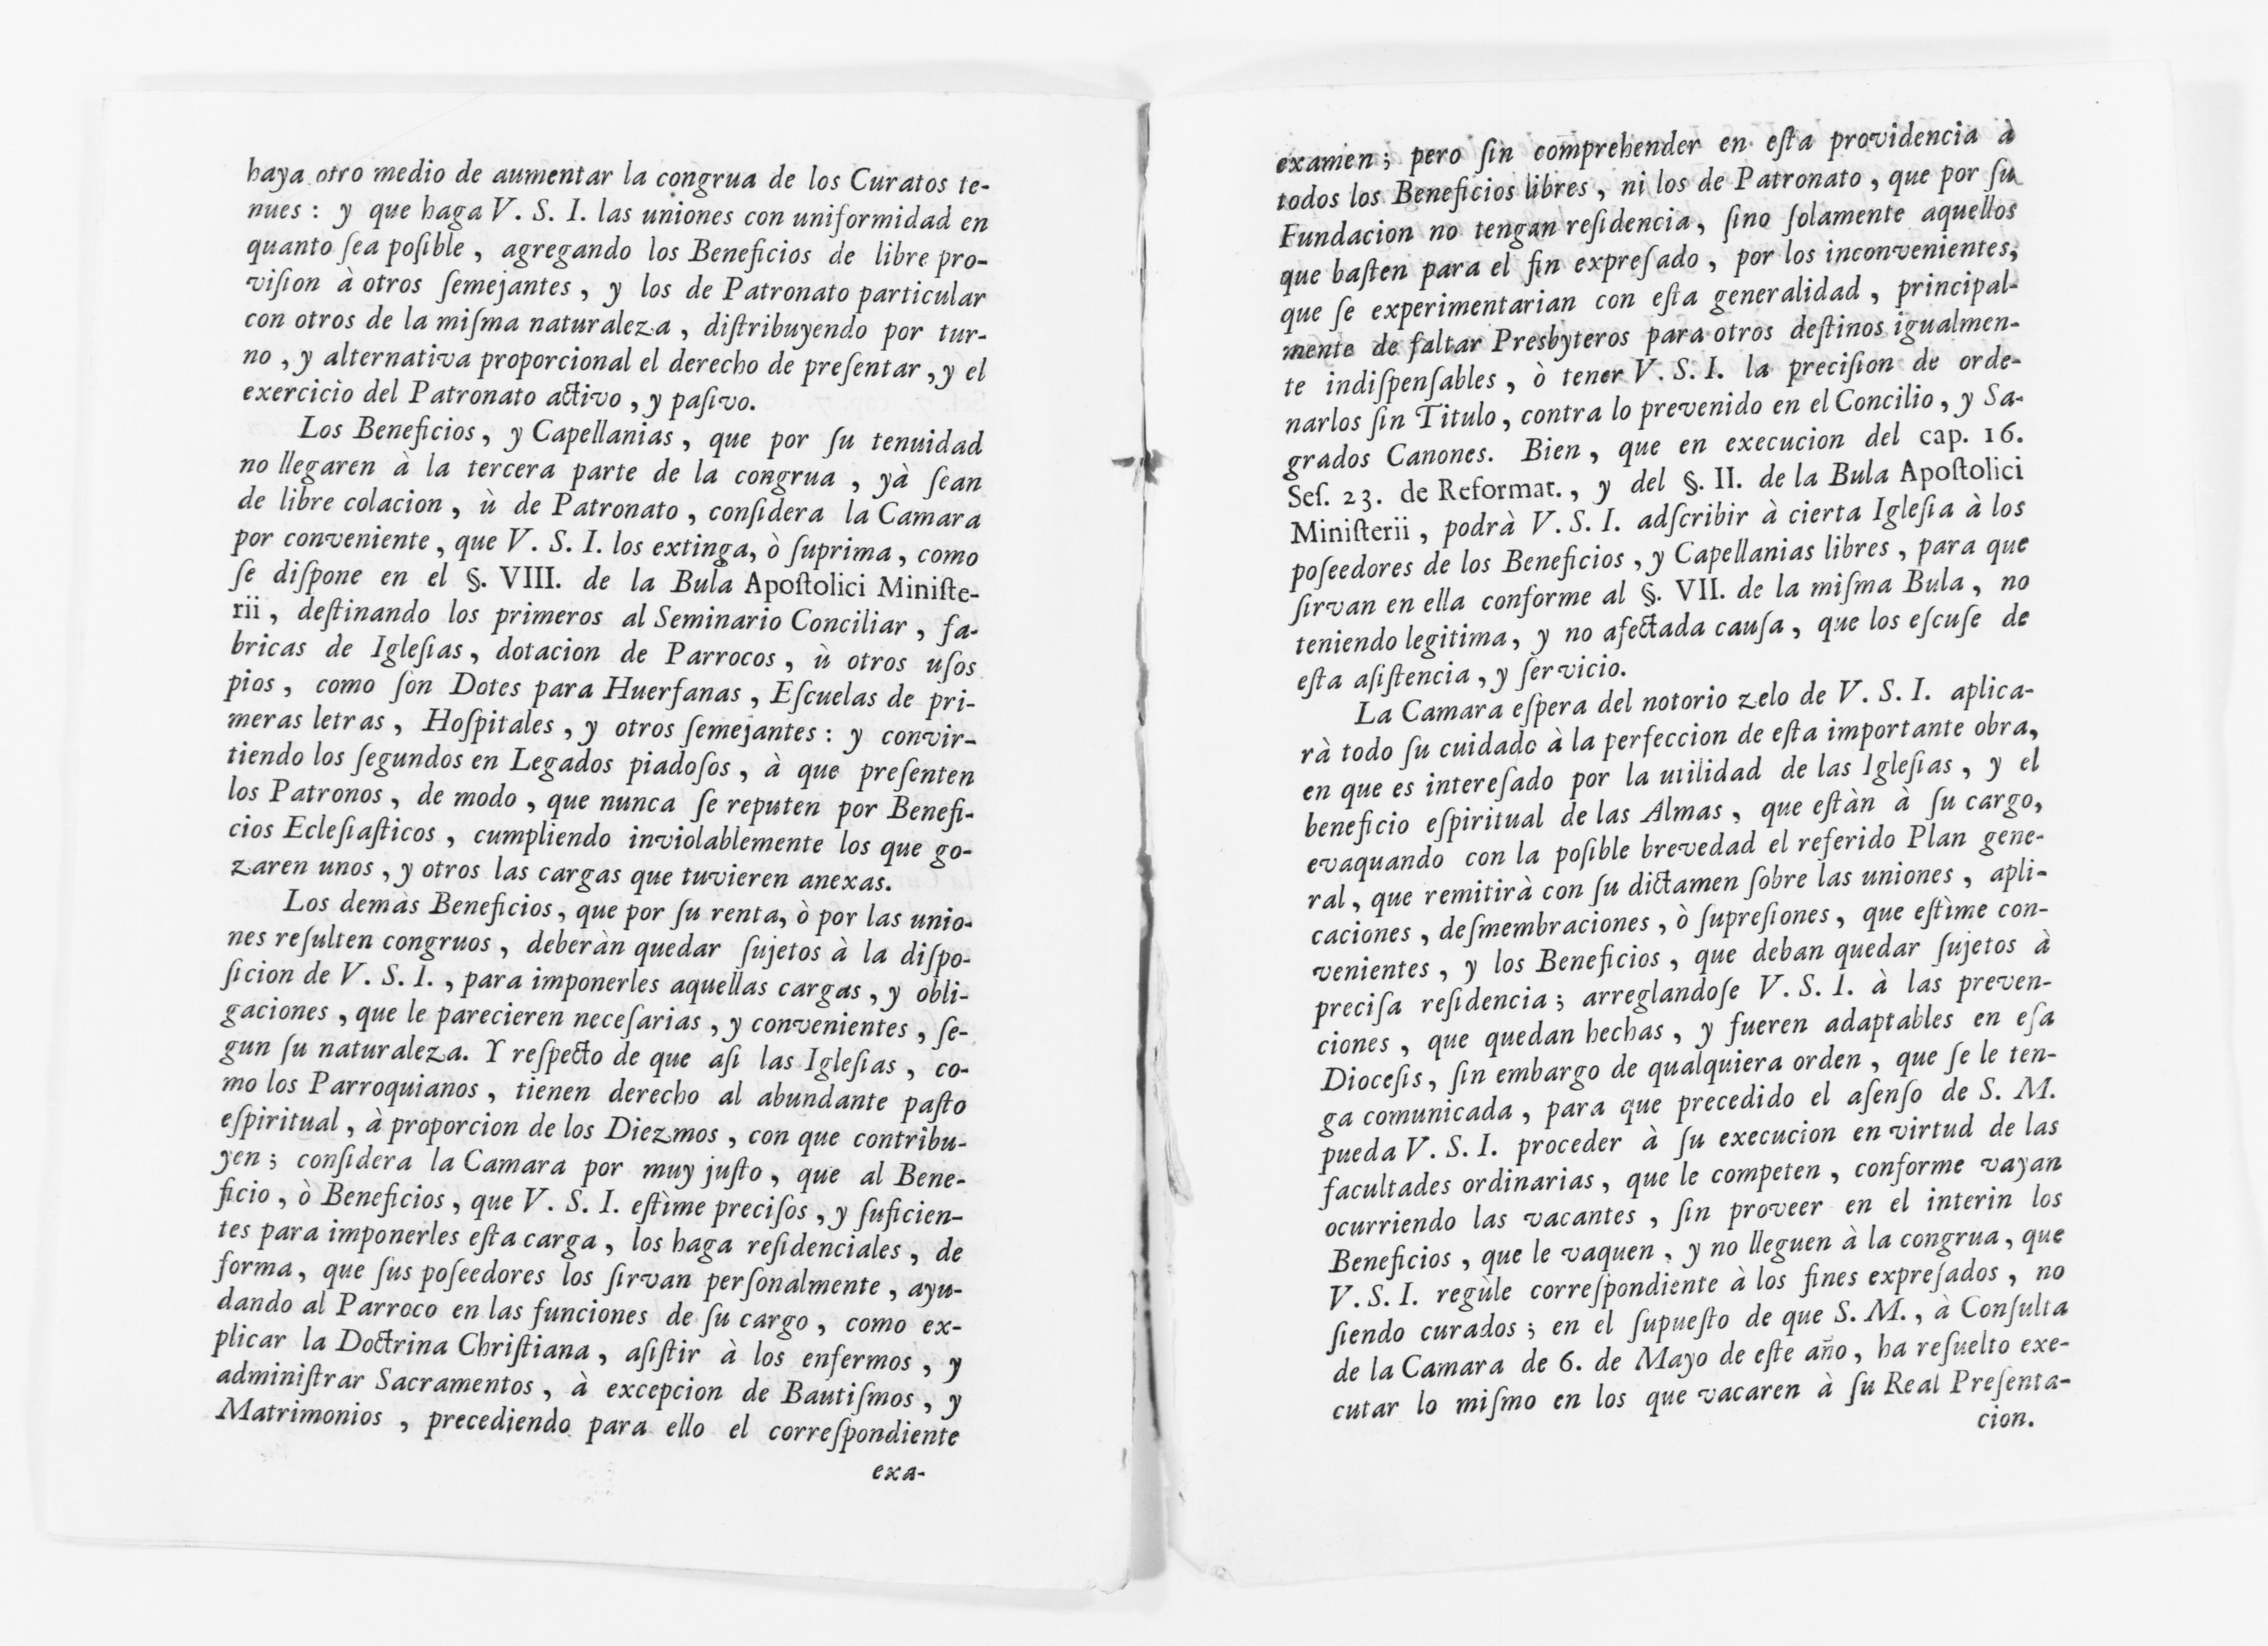 haya otro medio de aumentar la congrua de los Curatos te-
nues : y que haga V. S. I. las uniones con uniformidad en
quanto ſea poſible , agregando los Beneficios de libre pro-
viſion à otros ſemejantes , y los de Patronato particular
con otros de la miſma naturaleza , diſtribuyendo por tur-
no , y alternativa proporcional el derecho de preſentar , y el
exercicio del Patronato activo , y paſivo.
Los Beneficios , y Capellanias , que por ſu tenuidad
no llegaren à la tercera parte de la congrua , yà ſean
de libre colacion , ù de Patronato , conſidera la Camara
por conveniente , que V. S. I. los extinga, ò ſuprima , como
ſe diſpone en el §. VIII. de la Bula Apoſtolici Miniſte-
rii , deſtinando los primeros al Seminario Conciliar , fa-
bricas de Igleſias , dotacion de Parrocos , ù otros uſos
pios , como ſon Dotes para Huerfanas , Eſcuelas de pri-
meras letras , Hoſpitales , y otros ſemejantes : y convir-
tiendo los ſegundos en Legados piadoſos , à que preſenten
los Patronos , de modo , que nunca ſe reputen por Benefi-
cios Ecleſiaſticos , cumpliendo inviolablemente los que go-
zaren unos , y otros las cargas que tuvieren anexas.
Los demàs Beneficios , que por ſu renta, ò por las unio-
nes reſulten congruos , deberàn quedar ſujetos à la diſpo-
ſicion de V. S. I. , para imponerles aquellas cargas , y obli-
gaciones , que le parecieren neceſarias , y convenientes , ſe-
gun ſu naturaleza. Y reſpecto de que aſi las Igleſias , co-
mo los Parroquianos , tienen derecho al abundante paſto
eſpiritual , à proporcion de los Diezmos , con que contribu-
yen ; conſidera la Camara por muy juſto , que al Bene-
ficio , ò Beneficios , que V. S. I. eſtìme preciſos , y ſuficien-
tes para imponerles eſta carga , los haga reſidenciales , de
forma , que ſus poſeedores los ſirvan perſonalmente , ayu-
dando al Parroco en las funciones de ſu cargo , como ex-
plicar la Doctrina Chriſtiana , aſiſtir à los enfermos , y
adminiſtrar Sacramentos , à excepcion de Bautiſmos , y
Matrimonios , precediendo para ello el correſpondiente
exa-
examen ; pero ſin comprehender en eſta providencia à
todos los Beneficios libres , ni los de Patronato , que por ſu
Fundacion no tengan reſidencia , ſino ſolamente aquellos
que baſten para el fin expreſado , por los inconvenientes,
que ſe experimentarian con eſta generalidad , principal-
mente de faltar Presbyteros para otros deſtinos igualmen-
te indiſpenſables , ò tener V. S. I. la preciſion de orde-
narlos ſin Titulo , contra lo prevenido en el Concilio , y Sa-
grados Canones. Bien , que en execucion del cap. 16.
Seſ. 23. de Reformat. , y del §. II. de la Bula Apoſtolici
Miniſterii , podrà V. S. I. adſcribir à cierta Igleſia à los
poſeedores de los Beneficios , y Capellanias libres , para que
ſirvan en ella conforme al §. VII. de la miſma Bula , no
teniendo legitima , y no afectada cauſa , que los eſcuſe de
eſta aſiſtencia , y ſervicio.
La Camara eſpera del notorio zelo de V. S. I. aplica-
rà todo ſu cuidado à la perfeccion de eſta importante obra,
en que es intereſado por la utilidad de las Igleſias , y el
beneficio eſpiritual de las Almas , que eſtàn à ſu cargo,
evaquando con la poſible brevedad el referido Plan gene-
ral , que remitirà con ſu dictamen ſobre las uniones , apli-
caciones , deſmembraciones , ò ſupreſiones , que eſtìme con-
venientes , y los Beneficios , que deban quedar ſujetos à
preciſa reſidencia ; arreglandoſe V. S. I. à las preven-
ciones , que quedan hechas , y fueren adaptables en eſa
Dioceſis , ſin embargo de qualquiera orden , que ſe le ten-
ga comunicada , para que precedido el aſenſo de S. M.
pueda V. S. I. proceder à ſu execucion en virtud de las
facultades ordinarias , que le competen , conforme vayan
ocurriendo las vacantes , ſin proveer en el interin los
Beneficios , que le vaquen , y no lleguen à la congrua , que
V. S. I. regùle correſpondiente à los fines expreſados , no
ſiendo curados ; en el ſupueſto de que S. M. , à Conſulta
de la Camara de 6. de Mayo de eſte año , ha reſuelto exe-
cutar lo miſmo en los que vacaren à ſu Real Preſenta-
cion.